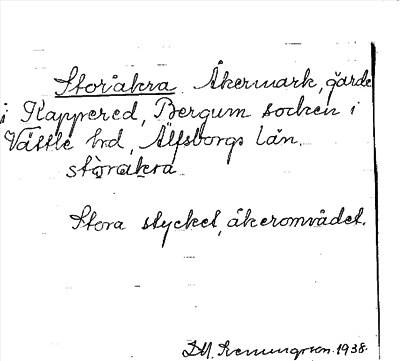 Storåkra Åkermark, gärde
i Kappered, Bergum socken i
Vättle hrd, Älfsborgs län.
stòrakra
Stora stycket, åkerområdet.
1938.